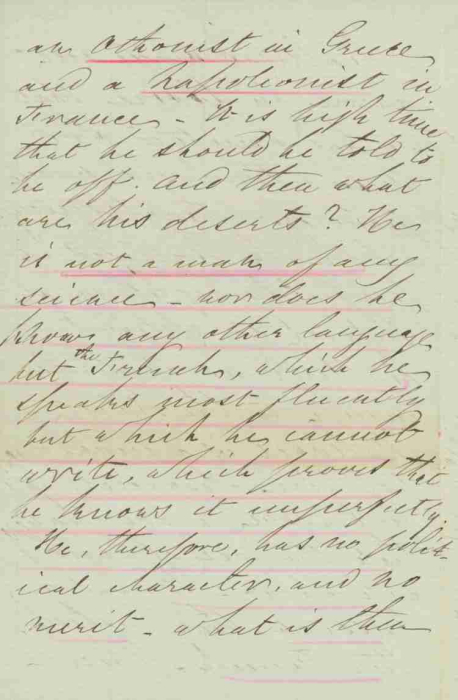 an Othonist in Greece
and a Napoleonist in
France - It is high time
that he should be told to
be off. And then what
are his deserts? He
is not a man of any
science - nor does he
know any other language
but the French, which he
speaks most fluently
but which he cannot
write, which proves that
he knows it imperfectly.
He, therefore, has no polit-
ical character, and no
merit - what is then